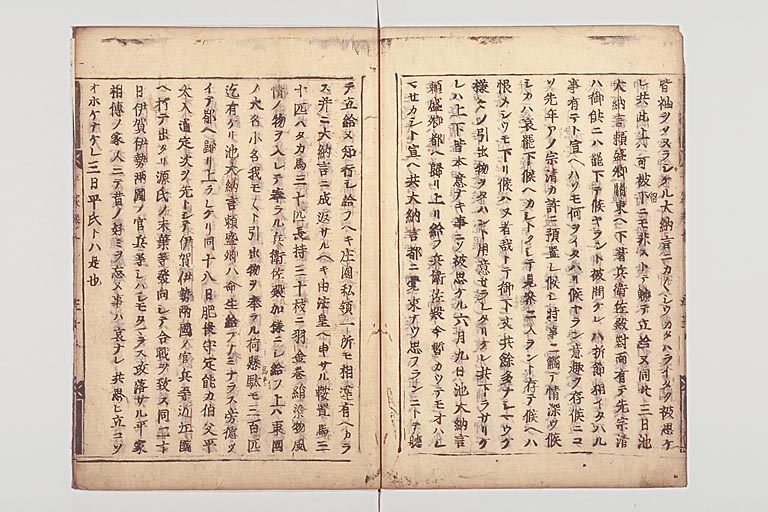 皆袖ヲヌラシケル大納言ニカクシツカタハライタク被思ケ
レ共此上ハ可被下ニモ非ス少々馳テ立給又同廿三日池
大納言頼盛卿關東ヘ下著兵衛佐殿對面有テ先宗清
ハ御供ニハ罷下テ候ヤラント被問ケレハ折節相イタハル
事有テト宣ヘハソモ何ヲイタハリ候ヤラン意趣ヲ存候ニコ
ソ先年アノ宗清カ許ニ預置レ候シ時事ニ觸テ情深ウ候
シカハ哀罷下候ヘカシトイシテ見參ニ入ラント存テ候ヘハ
恨メシウモ下リ候ハヌ者哉トテ御下文共餘多ナシマウケ
様々ノ引出物ヲタハント用意セラレタリケル共下ラサリケ
レハ上下皆本意ナキ事ニソ被思ケル六月九日池大納言
頼盛卿都ヘ歸リ上リ給フ兵衛佐殿今暫カウテモオハレ
マセカシト宣ヘ共大納言都ニ覺束ナウ思フランニトテ急
テ立給又知行シ給フヘキ庄園私領一所モ相違有ヘカラ
ス并ニ大納言ニ成返サルヘキ由法皇ヘ申サル鞍置馬三
十匹ハタカ馬三十匹長持三十枝ニ羽金巻絹染物風
情ノ物ヲ入レテ奉ラル兵衛佐殿加様ニシ給フ上ハ東國
ノ大名小名我モ〳〵ト引出物ヲ奉ラル荷懸駄モ三百匹
迄有ケリ池大納言頼盛卿ハ命生給フノミナラス旁徳ツ
イテ都ヘ歸リ上ラレケリ同十八日肥後守定能カ伯父平
太入道定次ヲ先トシテ伊賀伊勢兩國ノ官兵等近江國
ヘ打テ出タリ源氏ノ末葉等發向シテ合戰ヲ致ス同二十
日伊賀伊勢兩國ノ官兵等シハシモタマラス攻落サル平家
相傳ノ家人ニテ昔ノ好ミヲ忘ヌ事ハ哀ナレ共思ヒ立コソ
オホケナケレ三日平氏トハ是也